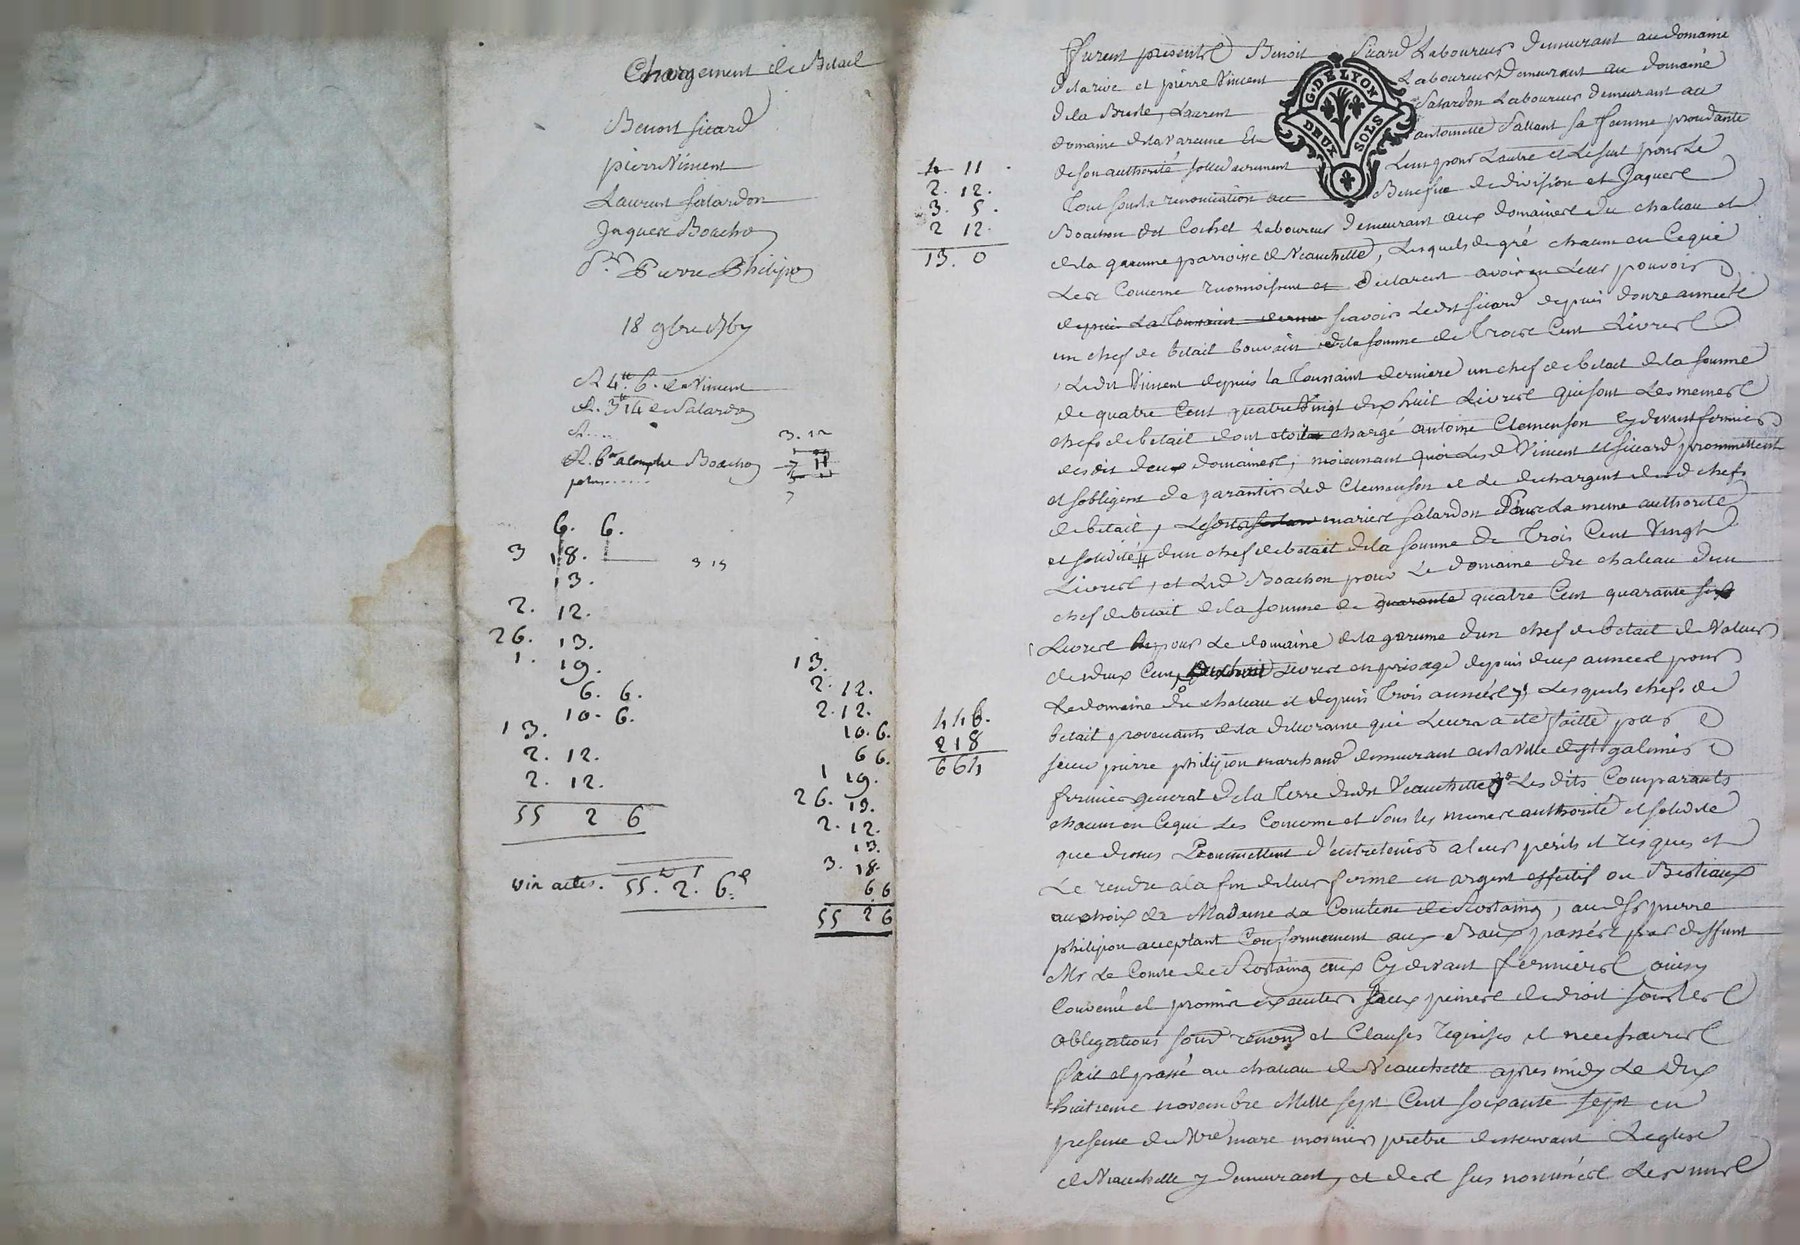 Chargement de Betail
Benoit Sicard
pierre Vincent
Laurent Salardon
Jaques Boachon
Sr Pierre Philipon
18 9bre 1767
R 4tt 6s de Vincent
R. 3tt 14 de Salardon
R.....
3. 12
R. 6tt acompte Boachon
6. 6.
3 18.
3 19
13.
2. 12.
26. 13.
1. 19.
6. 6.
10. 6.
13.
2. 12.
2. 12.
55 2 6
vin actes. 55tt 2. 6d
13.
2. 12.
2. 12.
10. 6.
6 6.
1 19.
26. 13.
2. 12.
13.
3. 18.
6 6
55 2 6
4 11
2. 12.
3. 5.
2 12.
13. 0
446.
218
664
G. DE LYON
DEUX SOLS
Furent presents Benoit Sicard Laboureur demeurant au domaine
de la rive et pierre Vincent Laboureur demeurant au domaine
de la Brosle, Laurent Salardon Laboureur demeurant au
domaine de la Varenne Et antoinette Sallant sa femme procedante
de son authorité sollidairement Lun pour Lautre et Le seul pour Le
Tout sous la renonciation au Benefice de division et Jaques
Boachon dit Cochet Laboureur demeurant aux domaines du chateau et
de la garenne parroisse de Veauchette, Lesquels de gré chacun en Ce qui
Les Concerne reconnoissent et declarent avoir en Leur pouvoir
depuis La Toussaint derniere scavoir Ledit Sicard depuis douze années
un chef de betail bouvain de la somme de Trois Cent Livres
Ledit Vincent depuis la Toussaint derniere un chef de betail de la somme
de quatre Cent quatre Vingt dix huit Livres qui sont Les memes
chefs de betail dont etoit chargé antoine Clemenson Cy devant fermier
desdit deux domaines, moiennant quoi Lesd Vincent et Sicard promettent
et sobligent de garantir Led Clemenson et de dechargent desd chefs
de betail, Lesdits mariés Salardon De La meme authorité
et solidité dun chef de betail de la somme de Trois Cent Vingt
Livres, et Led Boachon pour Le domaine du chateau dun
chef de betail de la somme de quarante quatre Cent quarante six
Livres et pour Le domaine de la garenne dun chef de betail de Valeur
de deux Cent dix huit Livres en prisage depuis deux années pour
Le domaine du chateau et depuis Trois années, Lesquels chefs de
betail provenants de la delivrance qui Leur a été faitte par
sieur pierre philipon marchand demeurant en la ville de St galmier
fermier general de la Terre dudit Veauchette Les dits Comparants
chacun en Cequi Les Concerne et sous les memes authorité et solidité
que dessus Promettent d'entretenir a leurs perils et risques et
Le rendre a la fin de leur ferme en argent effectif ou Bestiaux
au choix de Madame La Comtesse de Rostaing, ou dud Sr pierre
philipon acceptant Conformement aux Baux passés par deffunt
Mr Le Comte de Rostaing aux Cy devant fermiers ainsy
Convenu et promis executer peines de droit sous Les
obligations soumd renond et Clauses requises et necessaires
fait et passé au chateau de Veauchette apres midy Le dix
huitieme novembre Mille sept Cent soixante sept en
presence de Mre mare mosnier pretre desservant Leglise
de Veauchette y demeurant, et des sus nommés Les uns